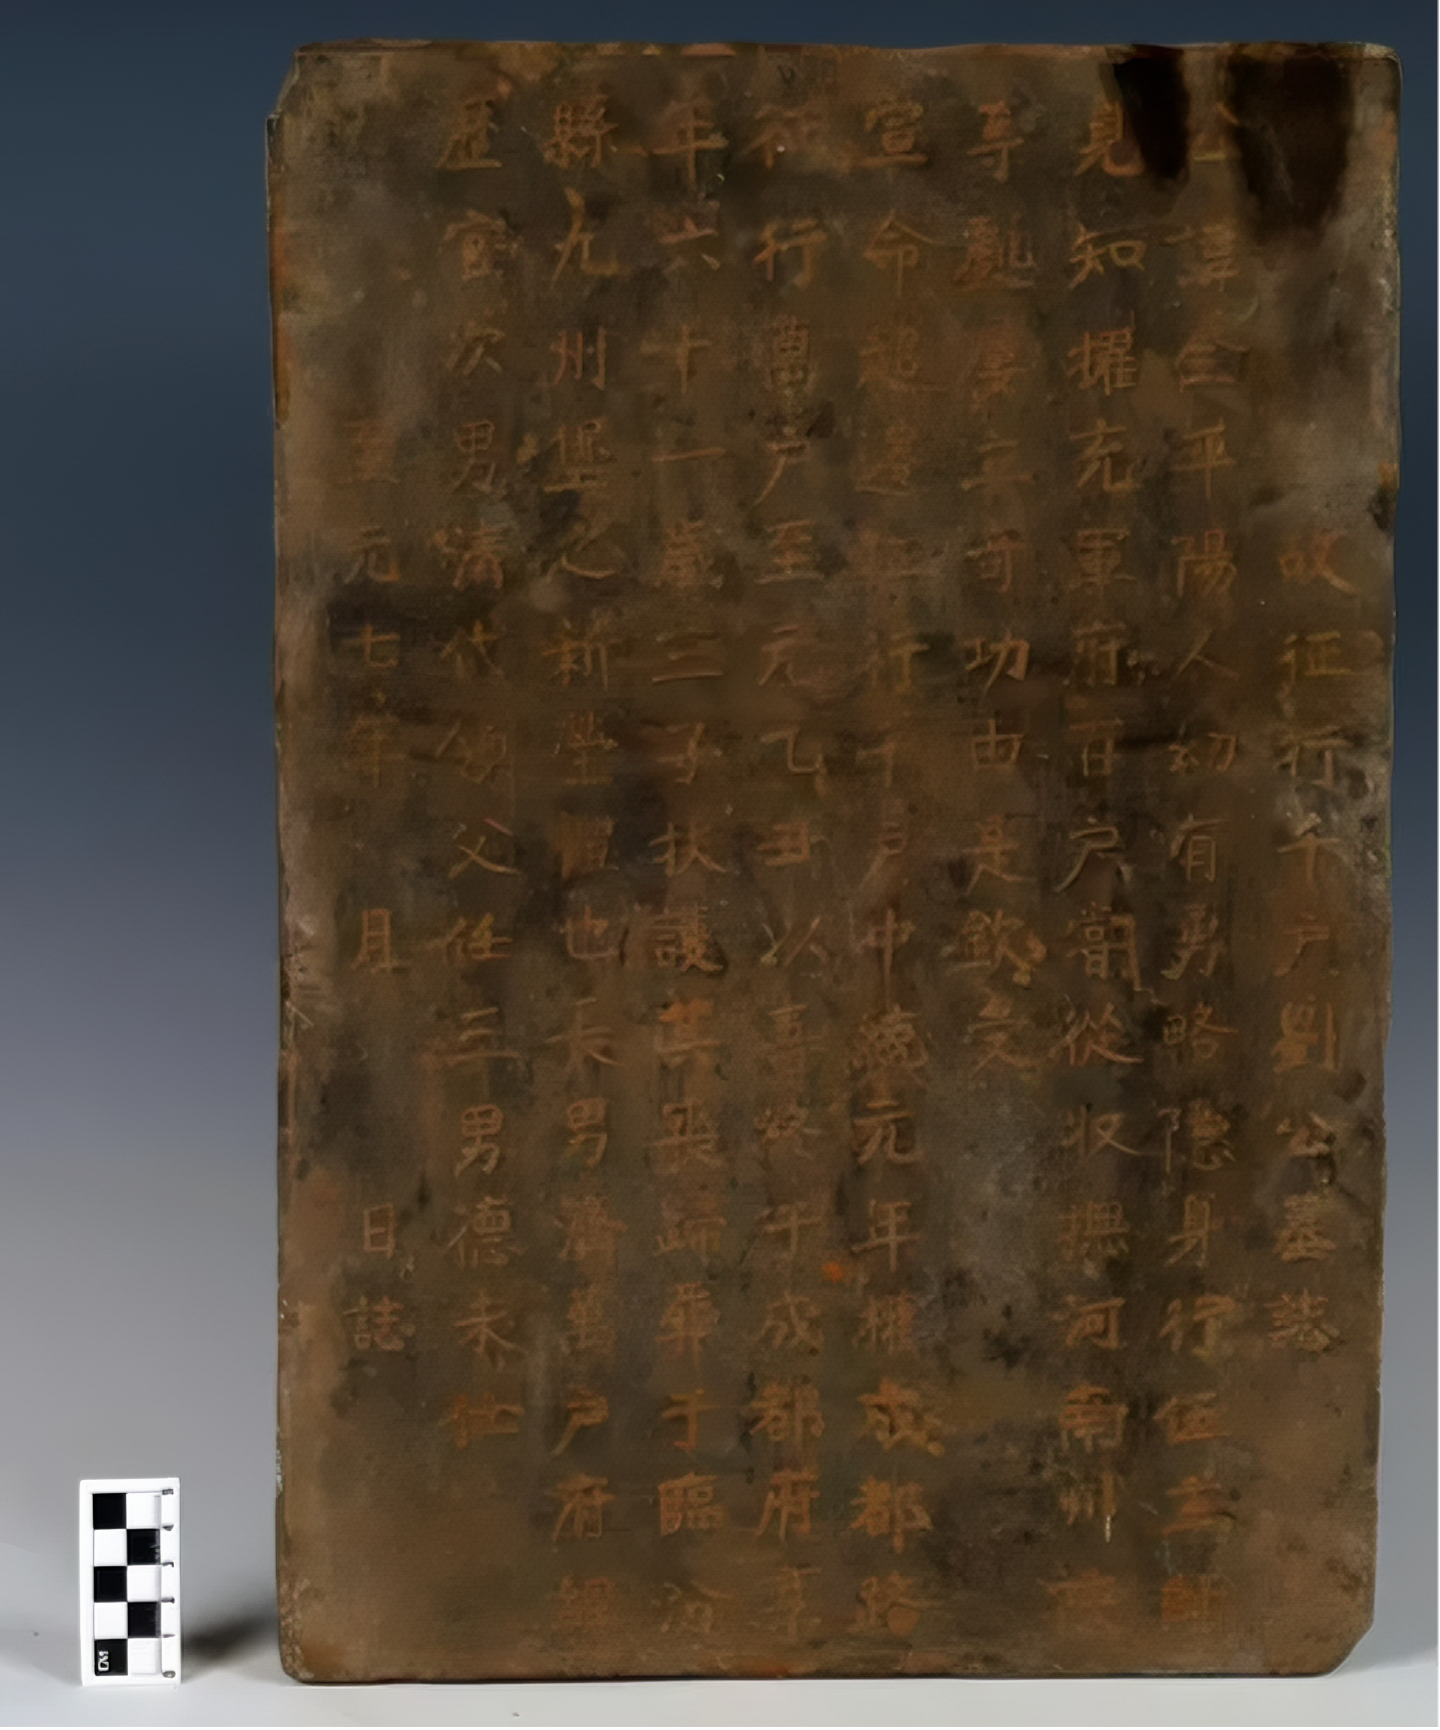 故征行千户劉公墓誌
公諱仝平陽人幼有勇略隱身行伍主帥
見知擢充軍府百户嘗從收撫河南州
等亂屢立奇功由是欽受
宣命遥遷征行千户中統元年權成都路
行萬户至元乙丑以壽終于成都府享
年六十一歲三子扶護其喪歸葬于臨汾
縣九州堡之新塋也長男濟萬户府
歷官次男清代領父任三男德未仕
至元七年 月 日誌